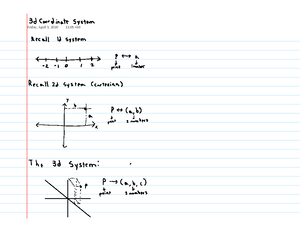 3d Coordinate System
Friday, April 3, 2020
Recall 1d system
P ↔ a
-2 -1 0 1 2
point 1 number
Recall 2d System (cartesian)
y
b
P ↔ (a, b)
a
point 2 numbers
x
The 3d System:
P → (a, b, c)
P
point 3 numbers